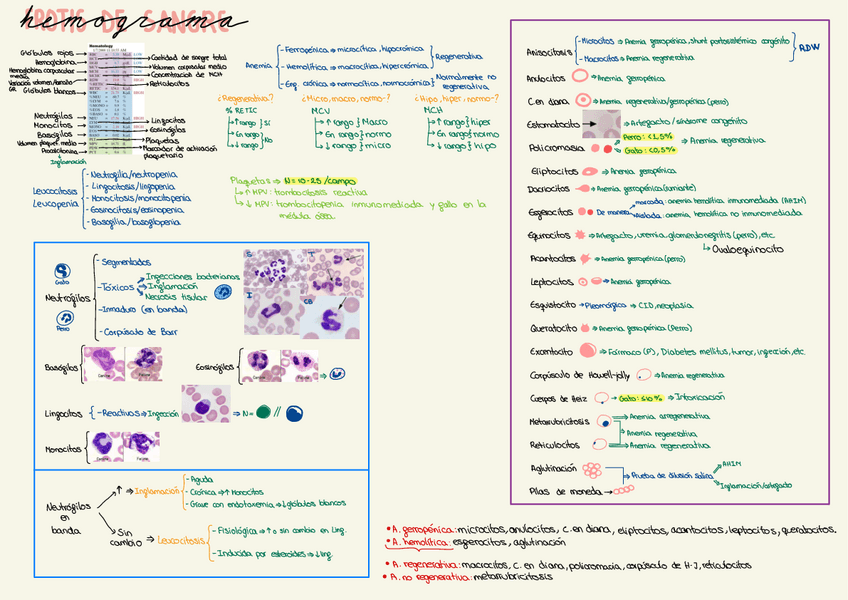 FROTIS DE SANGRE
hemograma
Glóbulos rojos
Hemoglobina
Hemoglobina corpuscular media
Variación volumen/tamaño GR
Glóbulos blancos
Neutrófilos
Monocitos
Basófilos
Volumen plaquet. medio
Procalcitonina
Inflamación
Hematology
Cantidad de sangre total
Volumen corpuscular medio
Concentración de MCH
Reticulocitos
Linfocitos
Eosinófilos
Plaquetas
Marcador de activación plaquetario
Anemia
- Ferropénica ⇒ microcítica, hipocrómica
- Hemolítica ⇒ macrocítica, hipercrómica
Regenerativa
- Enf. crónica ⇒ normocítica, normocrómica
Normalmente no regenerativa
¿Regenerativa?
% RETIC
↑ rango } Sí
En rango
↓ rango } No
¿Micro, macro, normo-?
MCV
↑ rango } Macro
En rango } normo
↓ rango } micro
¿Hipo, hiper, normo-?
MCH
↑ rango } hiper
En rango } normo
↓ rango } hipo
Leucocitosis
Leucopenia
- Neutrofilia/neutropenia
- Linfocitosis/linfopenia
- Monocitosis/monocitopenia
- Eosinocitosis/eosinopenia
- Basofilia/basofilopenia
Plaquetas ⇒ N = 10-25/campo
↑ MPV: trombocitosis reactiva
↓ MPV: trombocitopenia inmunomediada y fallo en la
médula ósea
Gato
Neutrófilos
Perro
- Segmentados
- Tóxicos
Infecciones bacterianas
Inflamación
Necrosis tisular
- Inmaduro (en banda)
- Corpúsculo de Barr
S
T
I
CB
Basófilos
Canine
Feline
Eosinófilos
Canine
Feline
Linfocitos
- Reactivos ⇒ Infección
⇒ N= //
Monocitos
Canine
Feline
Neutrófilos en banda
↑ ⇒ Inflamación
- Aguda
- Crónica ⇒ ↑ Monocitos
- Grave con endotoxemia ⇒ ↓ glóbulos blancos
Sin cambio ⇒ Leucocitosis
- Fisiológica ⇒ ↑ o sin cambio en Linf.
- Inducida por esteroides ⇒ ↓ linf.
Anisocitosis
- Microcitos ⇒ Anemia ferropénica, shunt portosistémico congénito
- Macrocitos ⇒ Anemia regenerativa
RDW
Anulocitos ⇒ Anemia ferropénica
C. en diana ⇒ Anemia regenerativa/ferropénica (perro)
Estomatocito ⇒ Artefacto/síndrome congénito
Policromasia
Perro: <1,5%
Gato: <0,5%
⇒ Anemia regenerativa
Eliptocitos ⇒ Anemia ferropénica
Dacriocitos ⇒ Anemia ferropénica (rumiante)
Esferocitos De manera
marcada: anemia hemolítica inmunomediada (AHIM)
Aislada: anemia hemolítica no inmunomediada
Equinocitos ⇒ Artefacto, uremia, glomerulonefritis (perro), etc.
↳ Ovaloequinocito
Acantocitos ⇒ Anemia ferropénica (perro)
Leptocitos ⇒ Anemia ferropénica
Esquistocito ⇒ Pleomórfico ⇒ CID, neoplasia
Queratocito ⇒ Anemia ferropénica (Perro)
Excentocito ⇒ Fármaco (P), Diabetes mellitus, tumor, infección, etc.
Corpúsculo de Howell-Jolly ⇒ Anemia regenerativa
Cuerpos de Heiz ⇒ Gato: ≤10% ⇒ Intoxicación
Metarrubricitosis
⇒ Anemia arregenerativa
⇒ Anemia regenerativa
Reticulocitos ⇒ Anemia regenerativa
Aglutinación
Prueba de dilución salina
AHIM
Inflamación/artefacto
Pilas de moneda
• A. ferropénica: microcitos, anulocitos, c. en diana, eliptocitos, acantocitos, leptocitos, queratocitos.
• A. hemolítica: esferocitos, aglutinación
• A. regenerativa: macrocitos, c. en diana, policromacia, corpúsculo de H-J, reticulocitos
• A. no regenerativa: metarrubricitosis